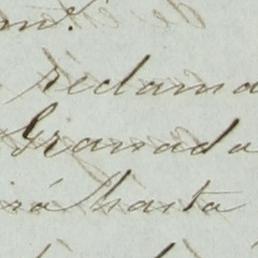 reclama
Granada
rá hasta